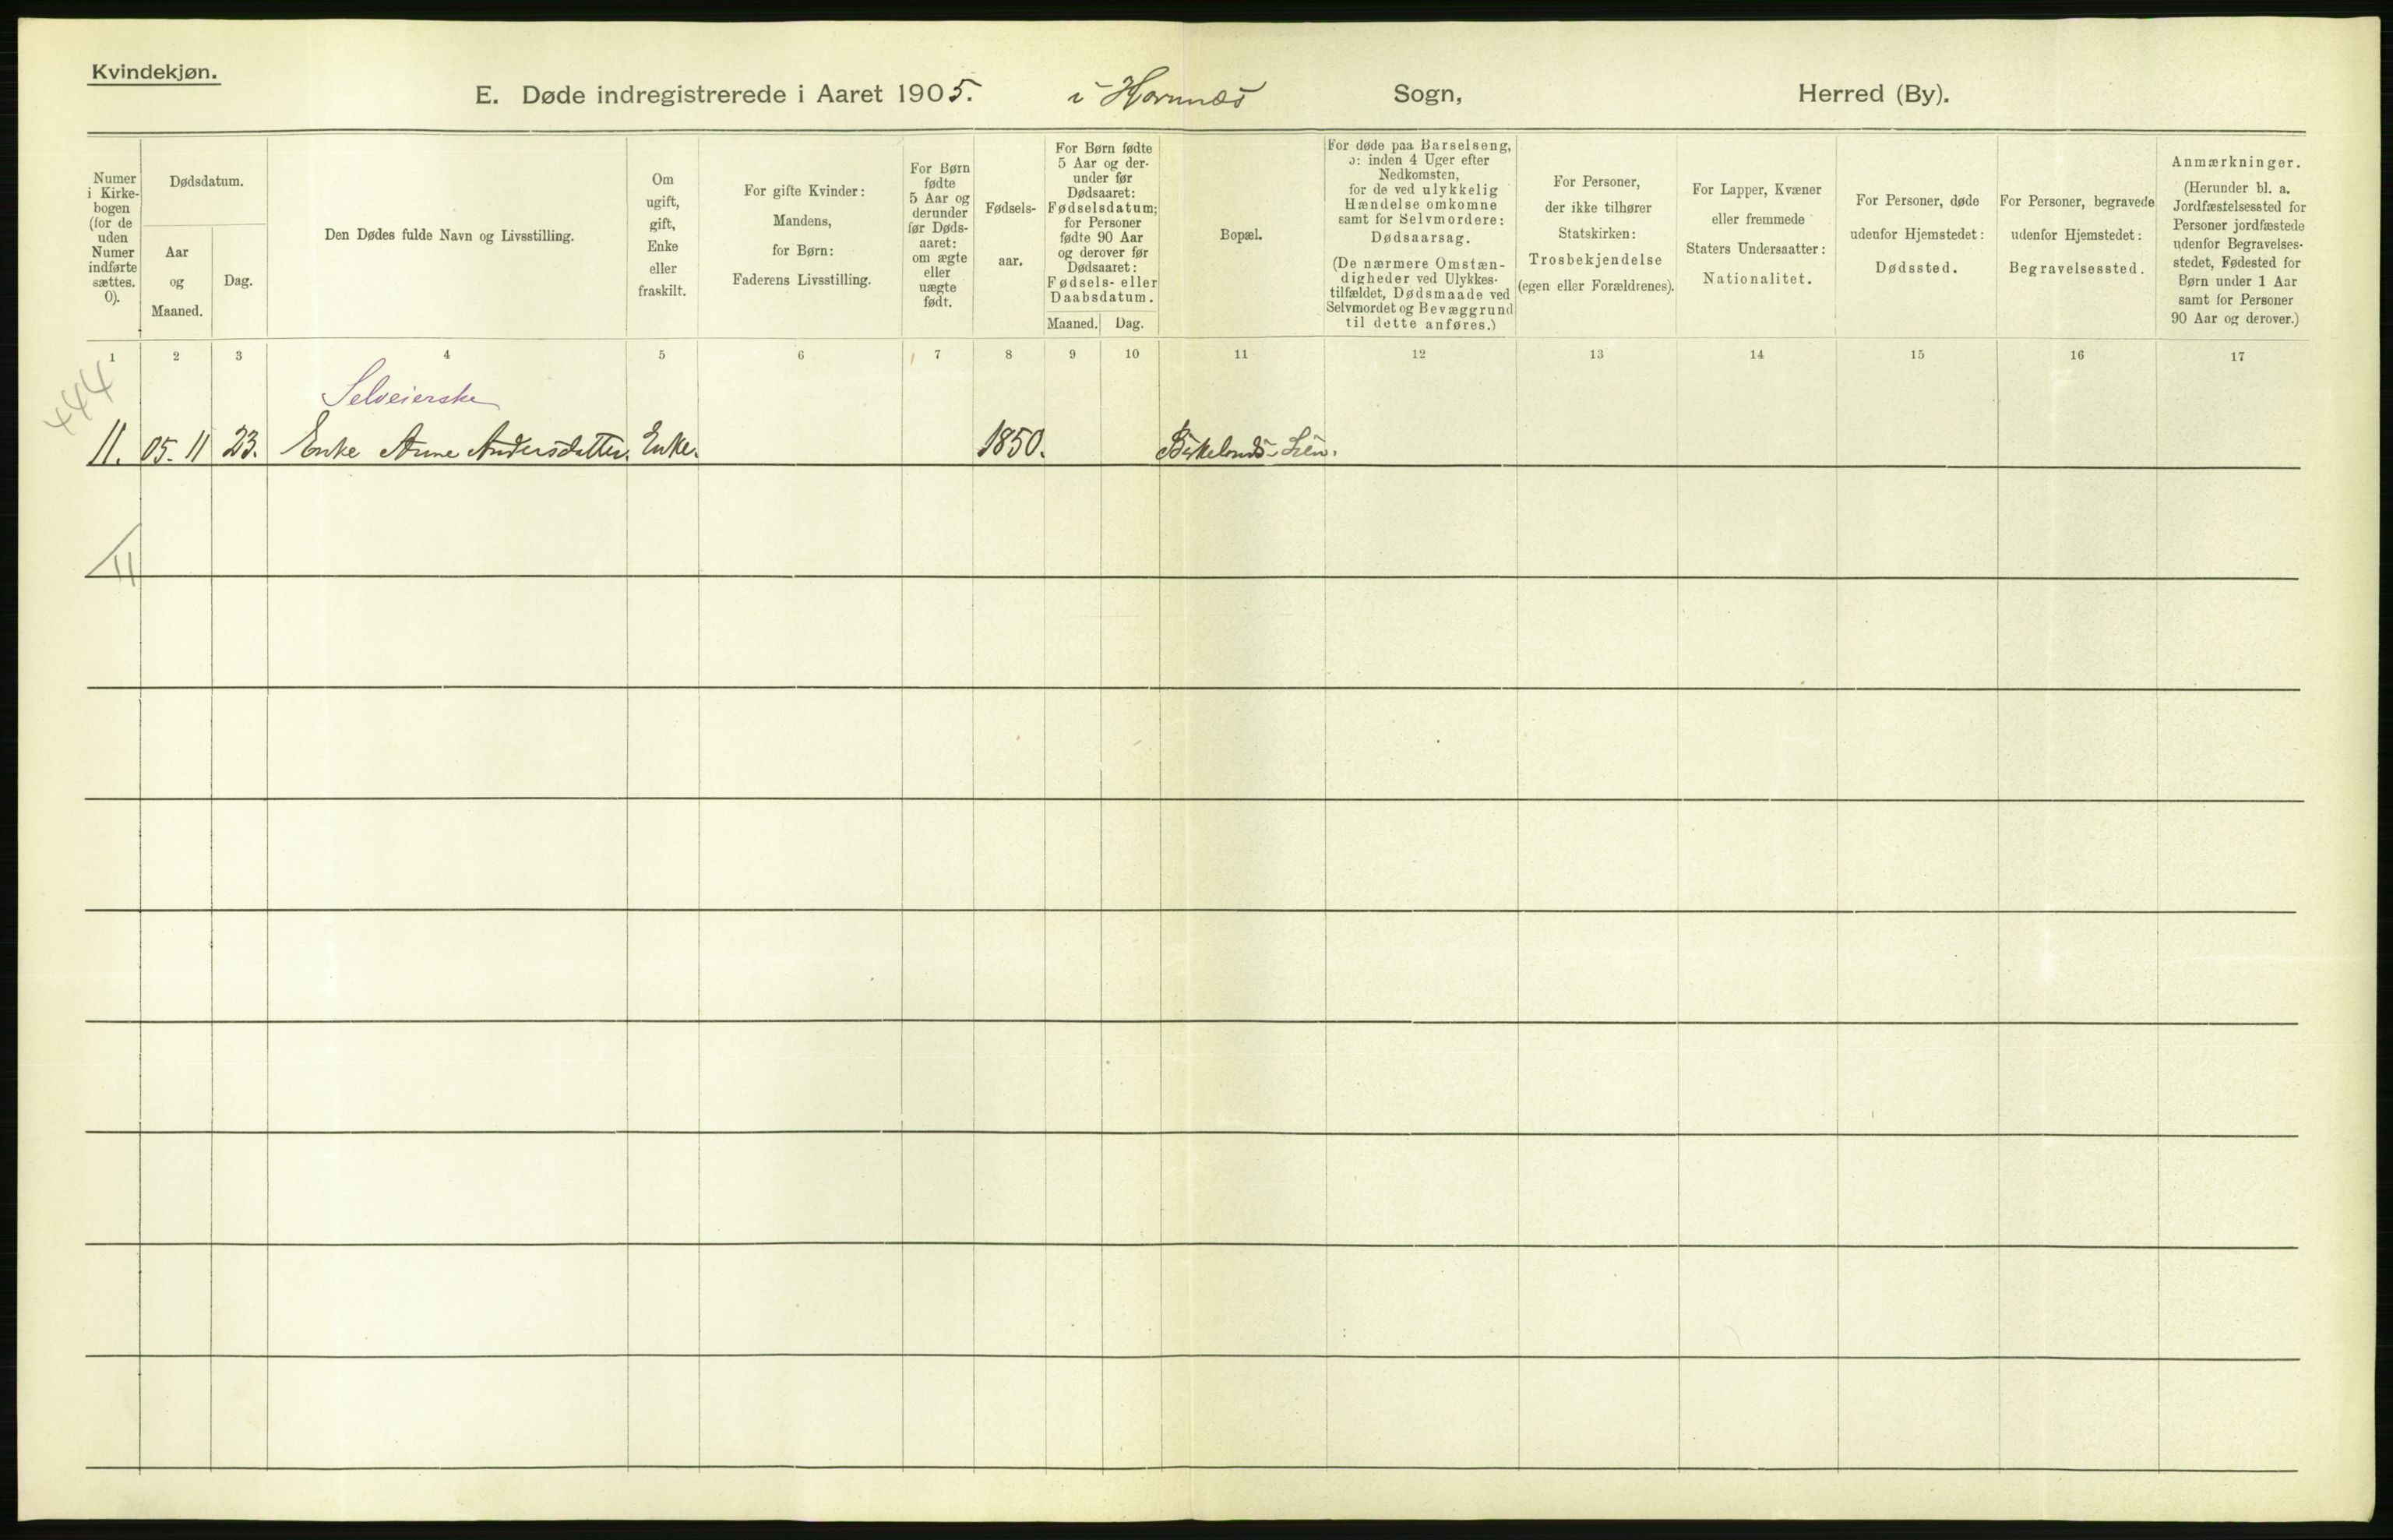 Kvindekjøn.
E. Døde indregistrerede i Aaret 1905. i Hornnes Sogn, Herred (By).
Numer
i Kirke-
bogen
(for de
uden
Numer
indførte
sættes.
0).
Dødsdatum.
Aar
og
Maaned.
Dag.
Den Dødes fulde Navn og Livsstilling.
Om
ugift,
gift,
Enke
eller
fraskilt.
For gifte Kvinder:
Mandens,
for Børn:
Faderens Livsstilling.
For Børn
fødte
5 Aar og
derunder
før Døds-
aaret:
om ægte
eller
uægte
født.
Fødsels-
aar.
For Børn fødte
5 Aar og der-
under før
Dødsaaret:
Fødselsdatum;
for Personer
fødte 90 Aar
og derover før
Dødsaaret:
Fødsels- eller
Daabsdatum.
Maaned.
Dag.
Bopæl.
For døde paa Barselseng,
ɔ: inden 4 Uger efter
Nedkomsten,
for de ved ulykkelig
Hændelse omkomne
samt for Selvmordere:
Dødsaarsag.
(De nærmere Omstæn-
digheder ved Ulykkes-
tilfældet, Dødsmaade ved
Selvmordet og Bevæggrund
til dette anføres.)
For Personer,
der ikke tilhører
Statskirken:
Trosbekjendelse
(egen eller Forældrenes).
For Lapper, Kvæner
eller fremmede
Staters Undersaatter:
Nationalitet.
For Personer, døde
udenfor Hjemstedet:
Dødssted.
For Personer, begravede
udenfor Hjemstedet:
Begravelsessted.
Anmærkninger.
(Herunder bl. a.
Jordfæstelsessted for
Personer jordfæstede
udenfor Begravelses-
stedet, Fødested for
Børn under 1 Aar
samt for Personer
90 Aar og derover.)
1 2 3 4 5 6 7 8 9 10 11 12 13 14 15 16 17
444
Selveierske
11. 05. 11 23. Enke Anne Andersdatter. Enke. 1850.
11